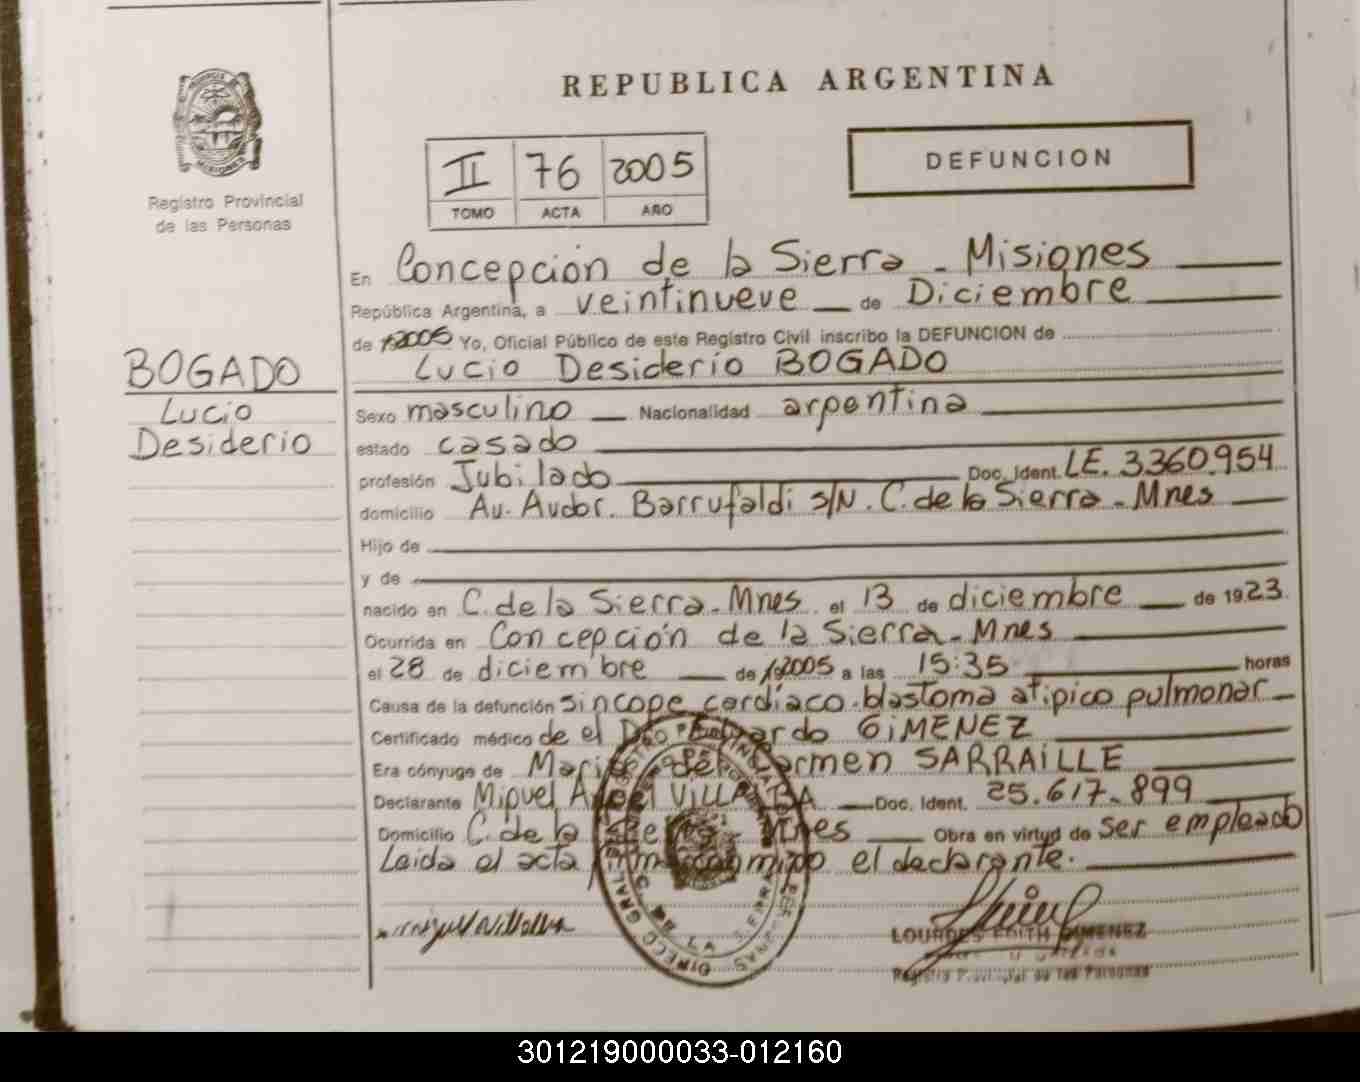 REPUBLICA ARGENTINA
Registro Provincial
de las Personas
II 76 2005
TOMO ACTA AÑO
DEFUNCION
En Concepción de la Sierra - Misiones
República Argentina, a veintinueve de Diciembre
de 2005 Yo, Oficial Público de este Registro Civil inscribo la DEFUNCION de
Lucio Desiderio BOGADO
BOGADO
Lucio
Desiderio
Sexo masculino Nacionalidad argentina
estado casado
profesión Jubilado Doc. Ident. LE. 3360.954
domicilio Av. Audor. Barrufaldi s/N. C. de la Sierra - Mnes
Hijo de
y de
nacido en C. de la Sierra - Mnes el 13 de diciembre de 1923
Ocurrida en Concepción de la Sierra - Mnes
el 28 de diciembre de 2005 a las 15:35 horas
Causa de la defunción sincope cardíaco. blastoma atipico pulmonar
Certificado médico de el GIMENEZ
Era cónyuge de del Carmen SARRAILLE
Declarante Miguel Angel VILLALBA Doc. Ident. 25.617.899
Domicilio C. de la Sierra Mnes Obra en virtud de ser empleado
Leida el acta el declarante.
LOURDES EDITH GIMENEZ
Registro Provincial de las Personas
301219000033-012160